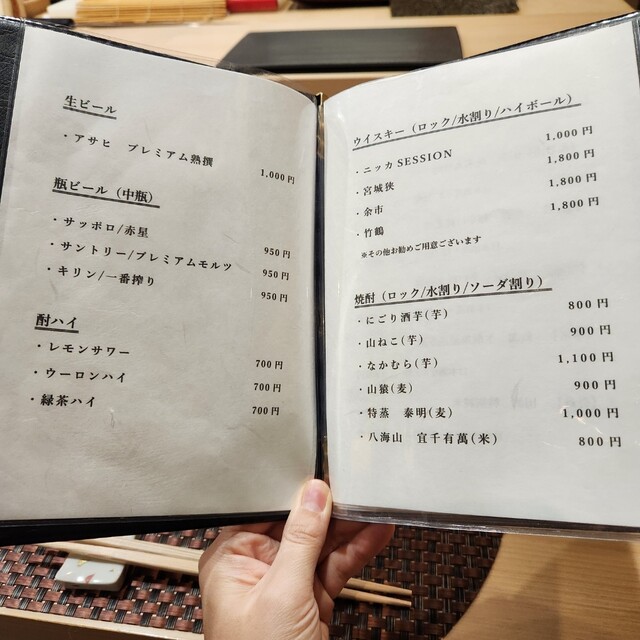 生ビール
・アサヒ プレミアム熟撰 1,000円
瓶ビール(中瓶)
・サッポロ/赤星 950円
・サントリー/プレミアムモルツ 950円
・キリン/一番搾り 950円
酎ハイ
・レモンサワー 700円
・ウーロンハイ 700円
・緑茶ハイ 700円
ウイスキー(ロック/水割り/ハイボール)
・ニッカ SESSION 1,000円
・宮城狭 1,800円
・余市 1,800円
・竹鶴 1,800円
※その他お勧めご用意ございます
焼酎(ロック/水割り/ソーダ割り)
・にごり酒芋(芋) 800円
・山ねこ(芋) 900円
・なかむら(芋) 1,100円
・山猿(麦) 900円
・特蒸 泰明(麦) 1,000円
・八海山 宜千有萬(米) 800円